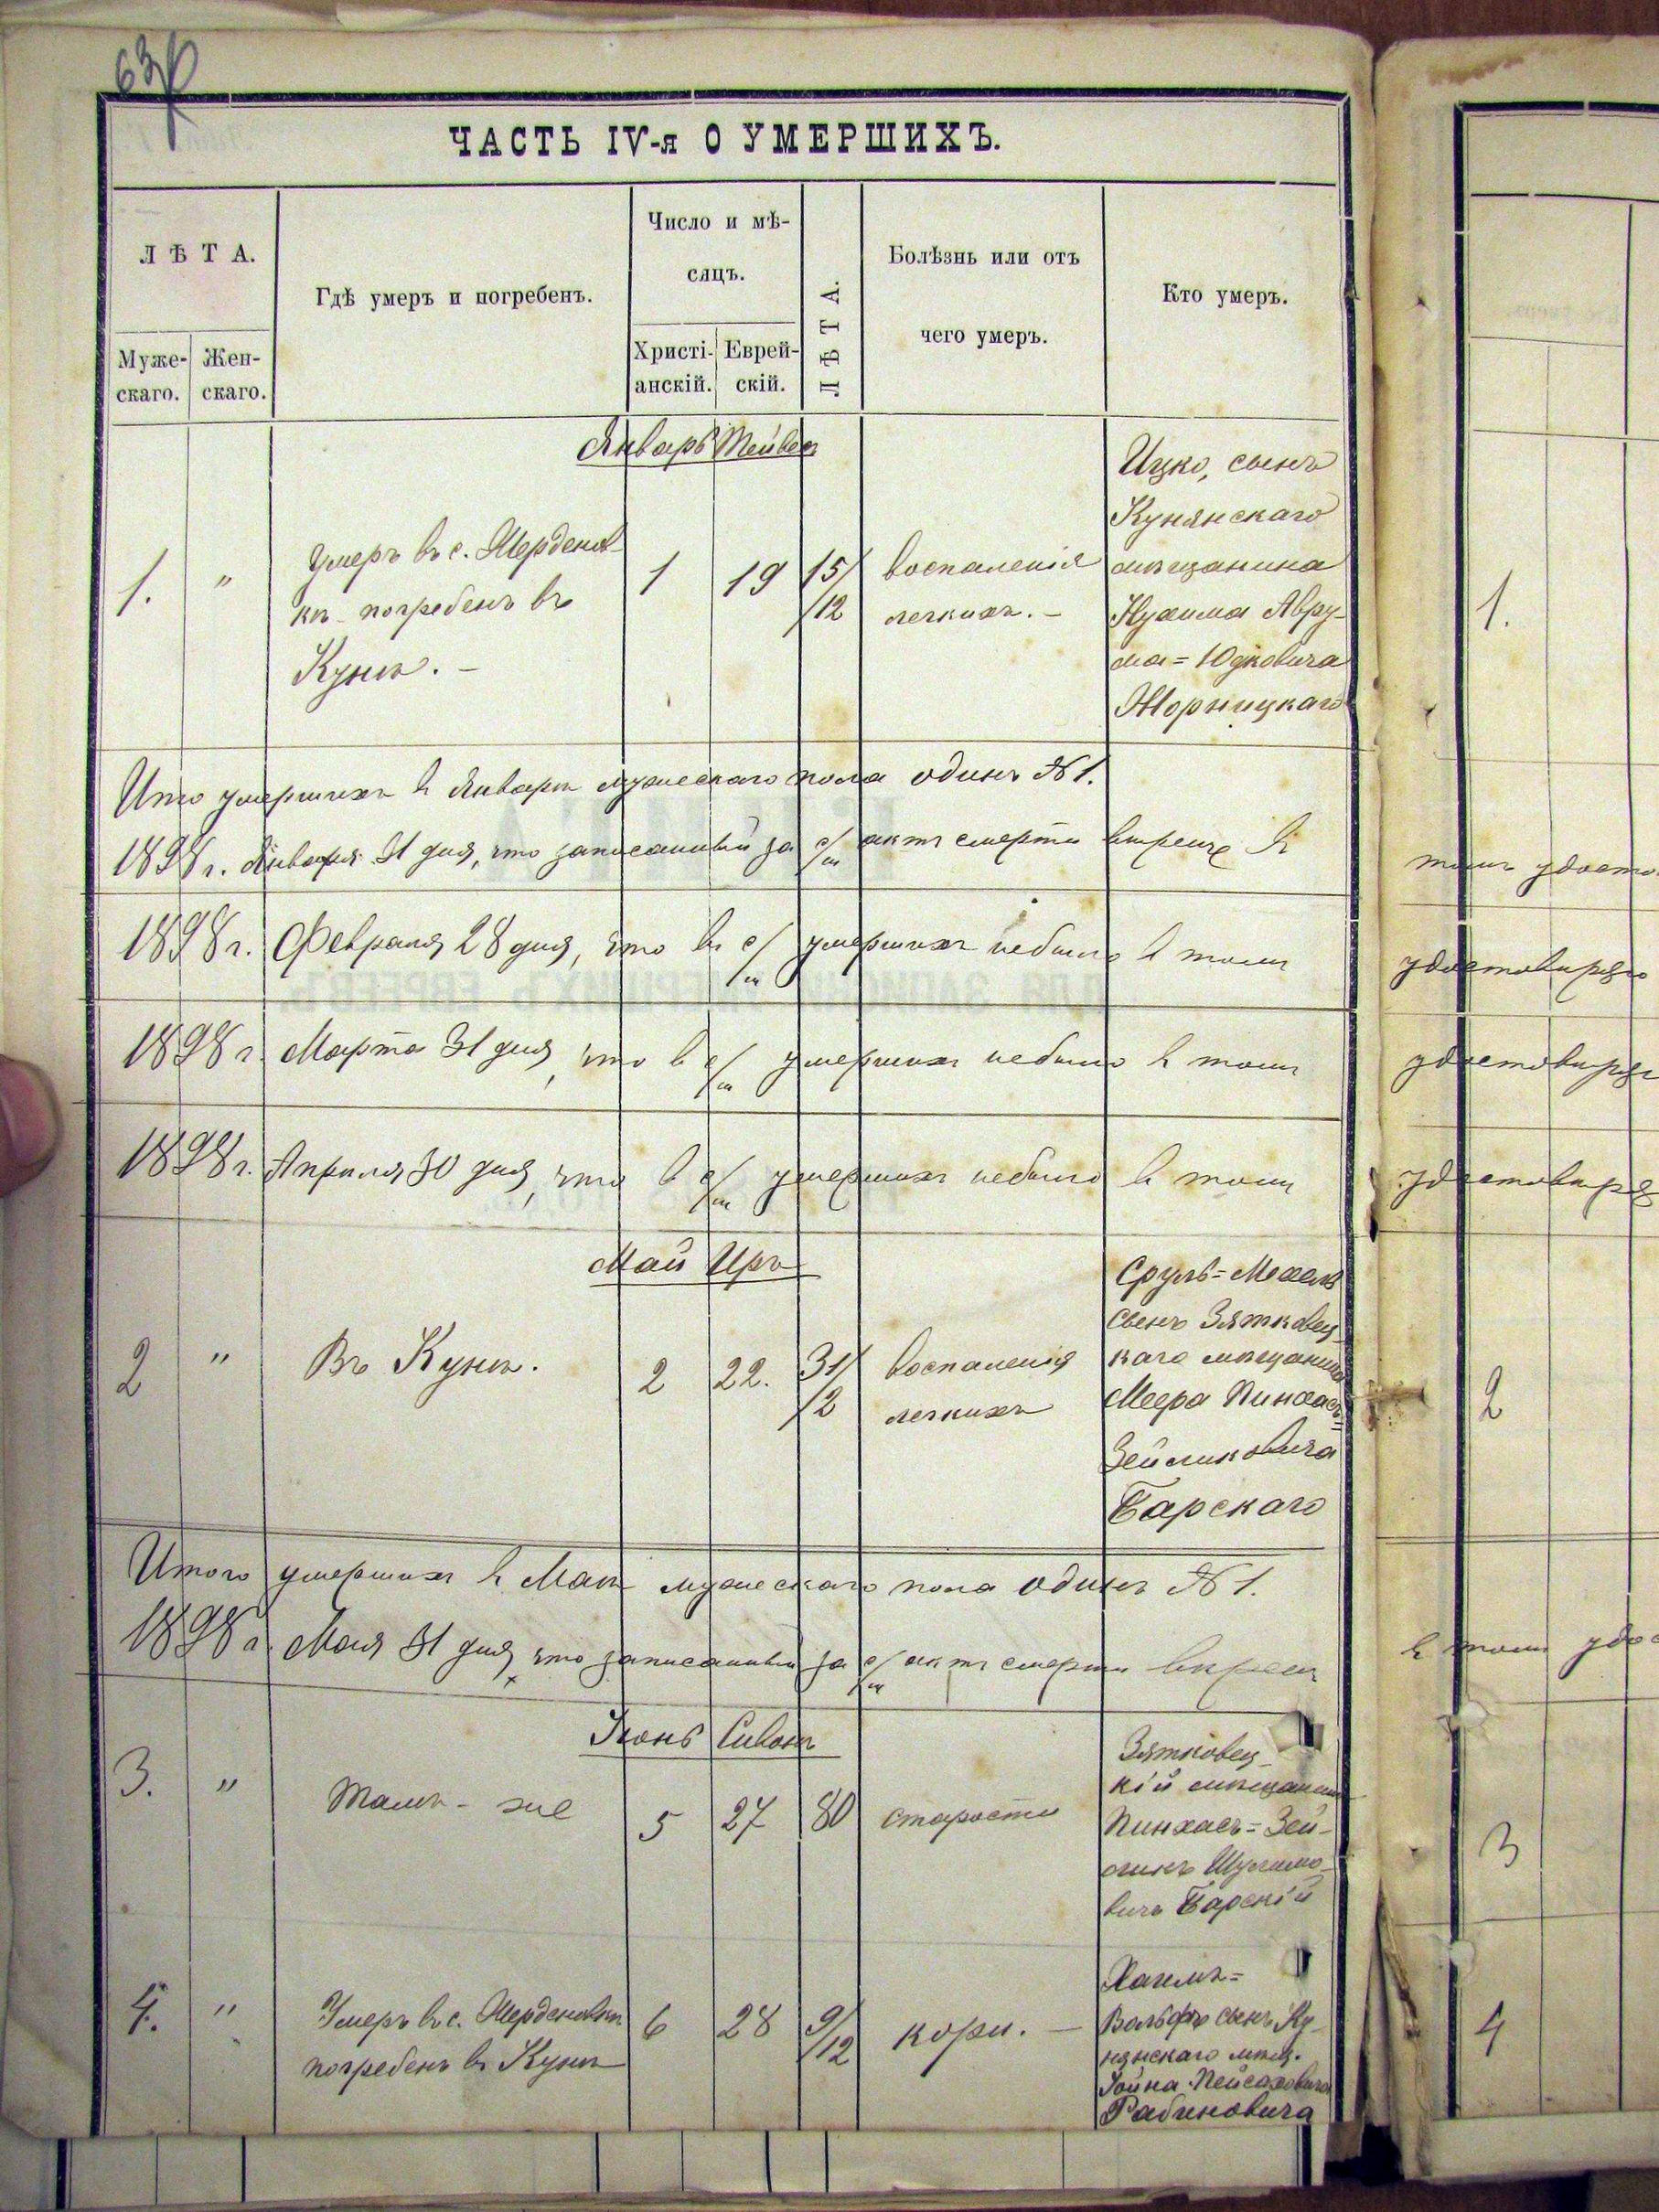 63
ЧАСТЬ IV-я О УМЕРШИХЪ.
ЛѢТА.
Муже-
скаго.
Жен-
скаго.
Гдѣ умеръ и погребенъ.
Число и мѣ-
сяцъ.
Христі-
анскій.
Еврей-
скій.
ЛѢТА.
Болѣзнь или отъ
чего умеръ.
Кто умеръ.
Январь Тейвес
1.
"
Умеръ въ с. Шерденов-
кѣ погребенъ въ
Кунѣ. –
1
19
15/12
воспаленія
легкихъ. –
Ицко, сынъ
Кунянскаго
мѣщанина
Нухима Авру-
ма=Юдковича
1.
Итого умершихъ въ Январѣ мужескаго пола одинъ № 1.
1898 г. Января 31 дня, что записанный за с/м актъ смерти въ
томъ удосто
1898 г. Февраля 28 дня, что въ с/м умершихъ небыло въ томъ
удостовѣряю
1898 г. Марта 31 дня, что въ с/м умершихъ небыло въ томъ
1898 г. Апрѣля 30 дня, что въ с/м умершихъ небыло въ томъ
Май Иръ
2
"
Въ Кунѣ.
2
22.
31/12
воспаленія
легкихъ
Сруль=Мехель
сынъ Зятковец-
каго мѣщанина
Меера Пинхасъ=
Зейликовича
Барскаго
2
Итого умершихъ въ Маѣ мужескаго пола одинъ № 1.
1898 г. Мая 31 дня, что записанный за с/м актъ смерти
въ томъ
Іюнь Сивонъ
3.
"
Тамъ - же
5
27
80
старости
Зятковец-
кій мѣщанинъ
Пинхасъ=Зей-
ликъ Шулимо-
вичъ Барскій
3
4.
"
Умеръ въ с. Шерденовкѣ
погребенъ въ Кунѣ
6
28
9/12
кори. –
Хаимъ=
Вольфъ сынъ Ку-
нянскаго мѣщ.
Іойна Пейсаховича
Рабиновича
4